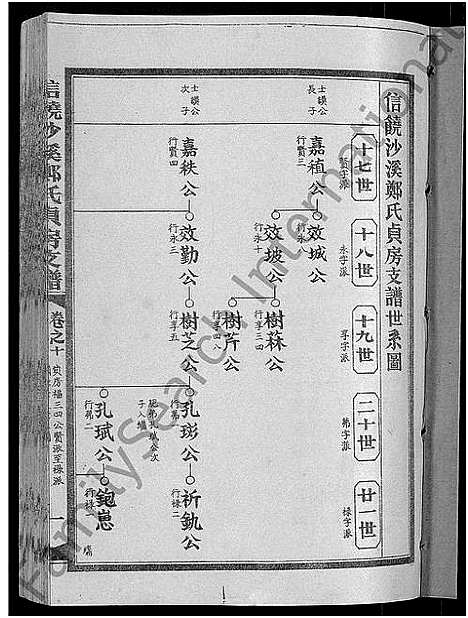 信饒沙溪鄭氏貞房支譜世系圖
十七世
賢字派
十八世
永字派
十九世
享字派
二十世
第字派
廿一世
祿字派
士謨公
長子
嘉植公
行賢三
效城公
效坡公
行永十
樹菻公
行享三四
樹芹公
行享四八
士謨公
次子
嘉秩公
行賢四
效勤公
行永三
樹芝公
行享五
孔珓公
子入繼
祈釚公
行祿二
孔珷公
行第二
行祿一
信饒沙溪鄭氏貞房支譜
卷之十
貞房福三四公賢派至祿派
一
FamilySearch International